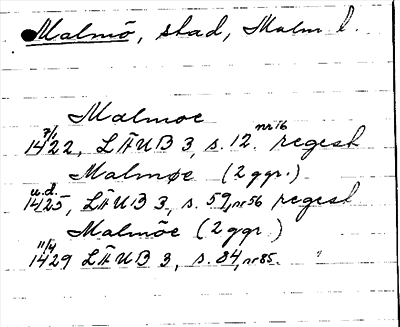 Malmö, stad, Malm l.
Malmoe
7/1 1422, LÄUB 3, s. 12. nr 16 regest
Malmøe (2 ggr.)
u.d. 1425, LÄUB 3, s. 59, nr 56 regest
Malmöe (2 ggr)
11/4 1429 LÄUB 3, s. 84, nr 85. "